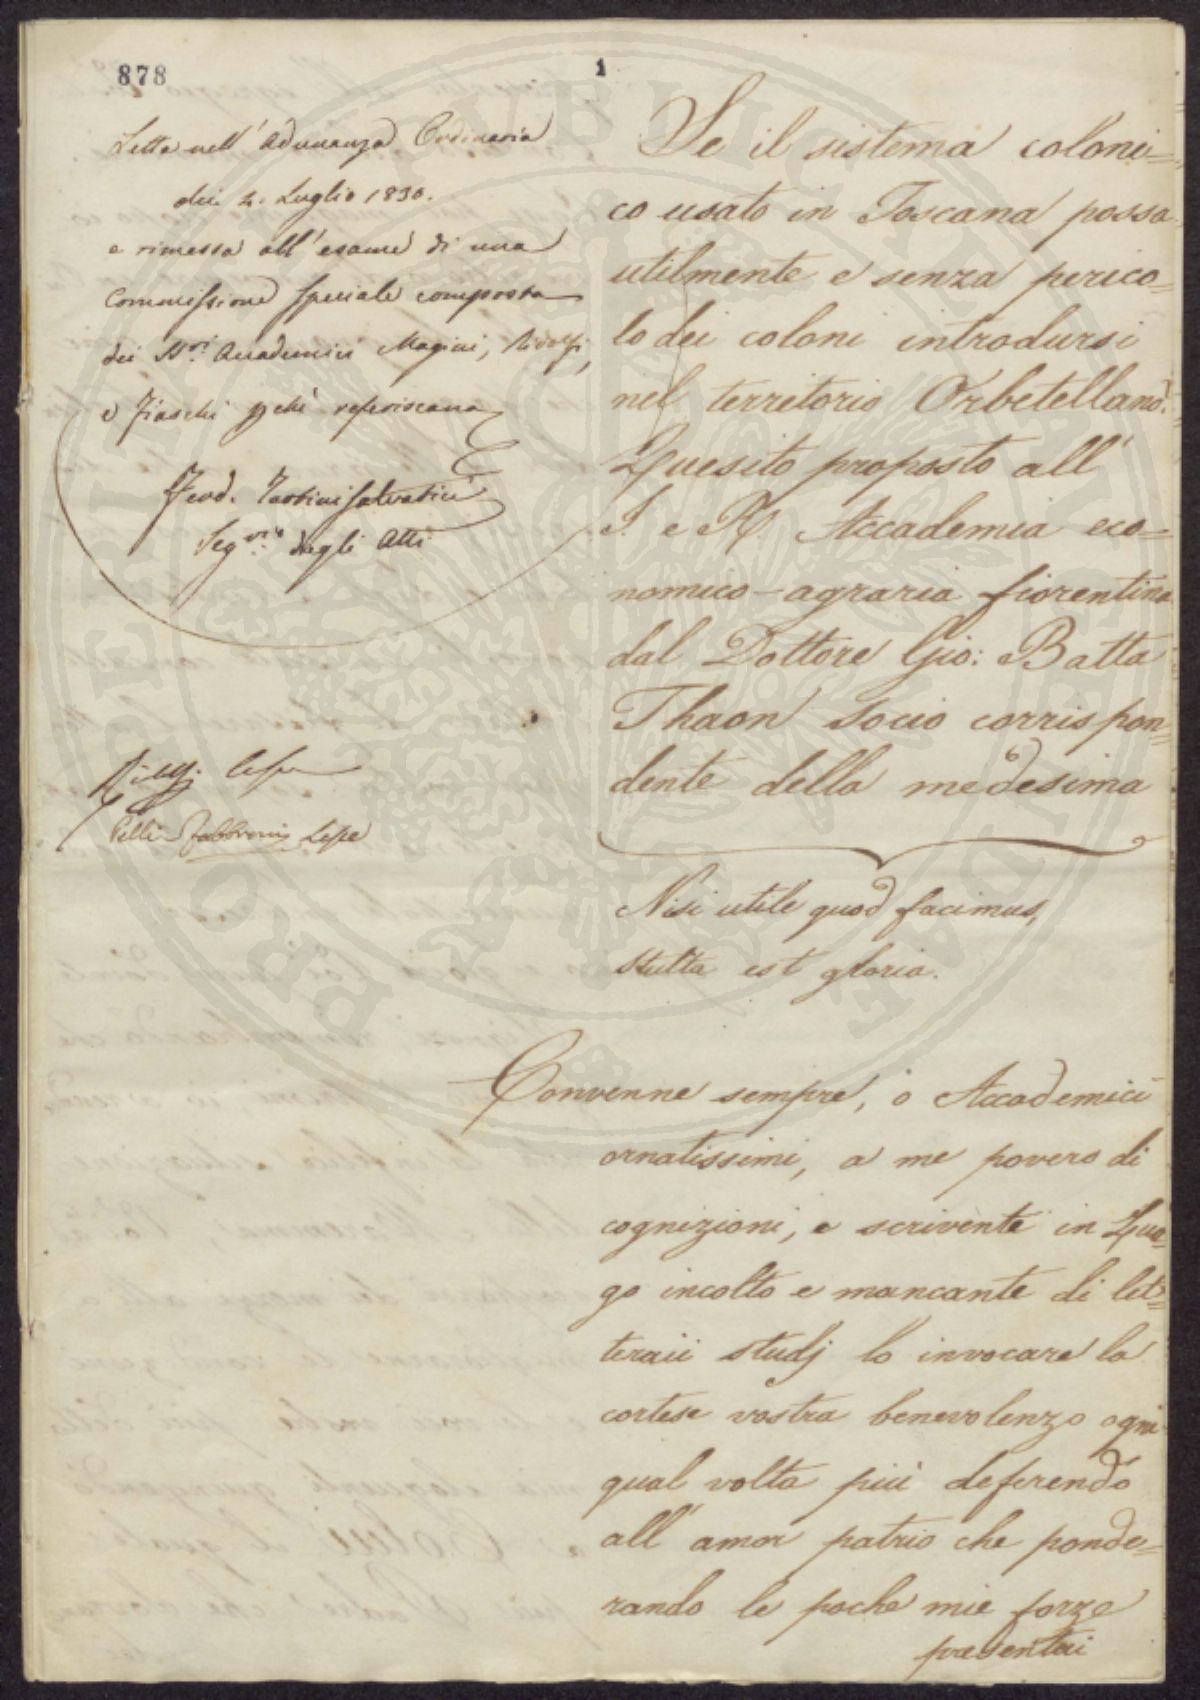 878
1
Letta nell' Adunanza Ordinaria
dei 2. Luglio 1830.
e rimessa all' esame di una
Commissione Speciale composta
dei SS.ri Accademici Magini, Ridolfi,
e Fiaschi pchè referiscano
Ferd. Tartini Salvatici
Seg.rio degli Atti
Ridolfi
Pelli Fabbroni
Se il sistema coloni=
co usato in Toscana possa
utilmente e senza perico=
lo dei coloni introdursi
nel territorio Orbetellano.
Quesito proposto all'
I. e R. Accademia eco=
nomico-agraria fiorentina
dal Dottore Gio: Batta
Thaon Socio corrispon=
dente della medesima
Nisi utile quod facimus,
stulta est gloria.
Convenne sempre, o Accademici
ornatissimi, a me povero di
cognizioni, e scrivente in Luo=
go incolto e mancante di let=
terarii studj lo invocare la
cortese vostra benevolenza ogni
qual volta più deferendo
all' amor patrio che ponde=
rando le poche mie forze
presentai
PROSPERITATI PUBLICAE AUGENDAE